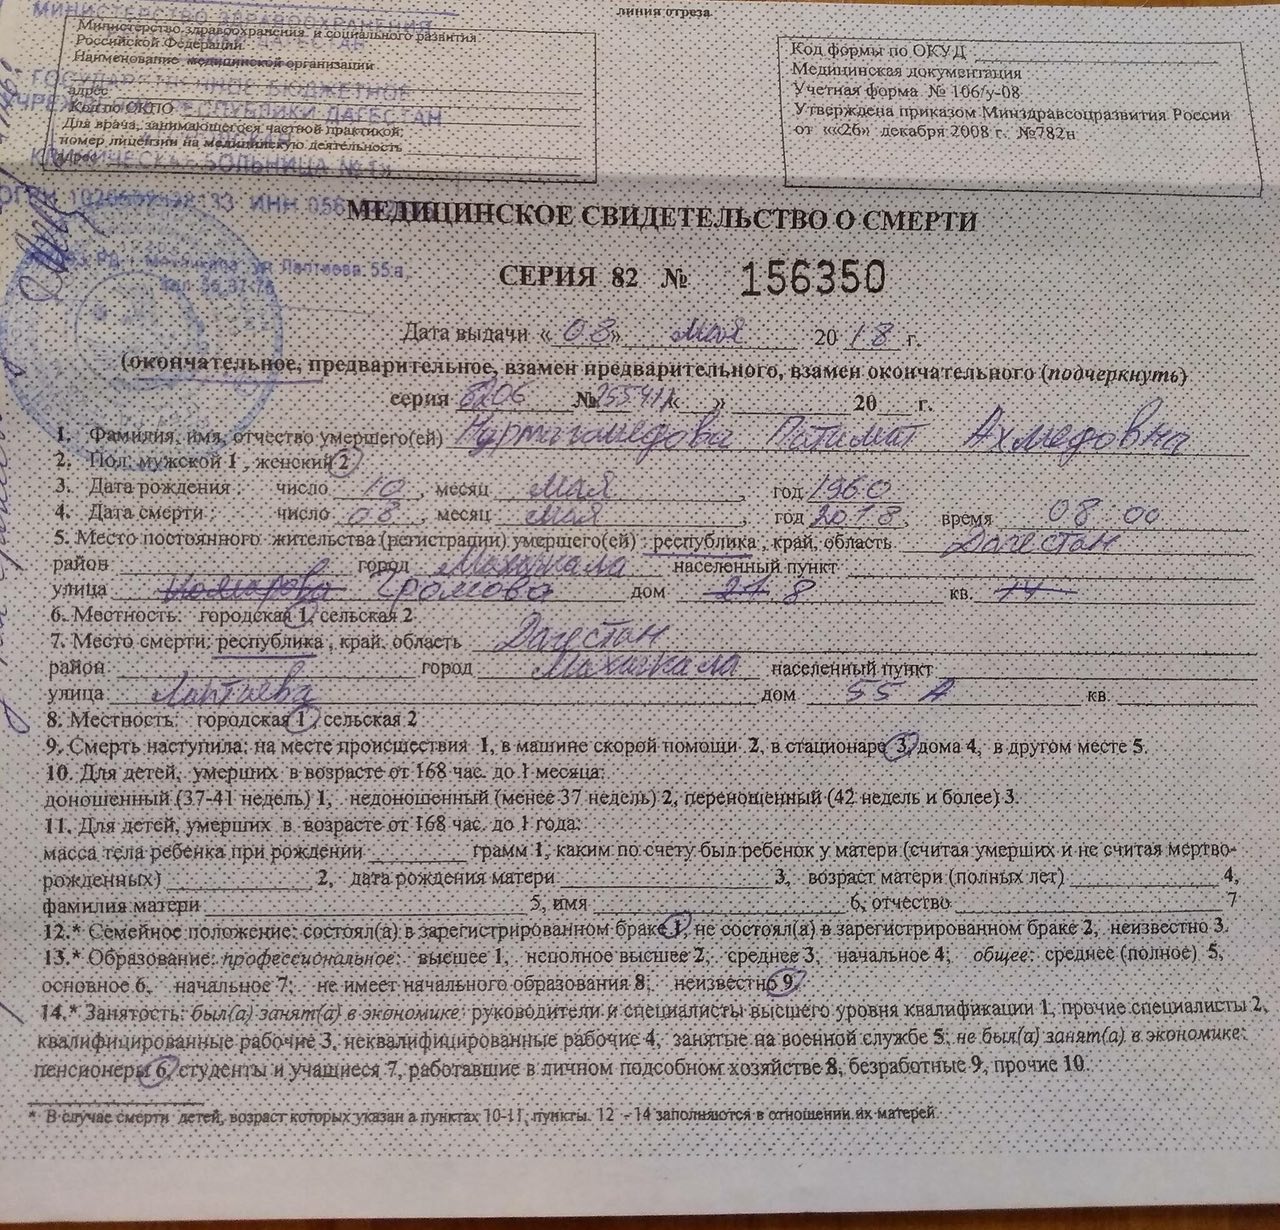 линия отреза
МИНИСТЕРСТВО ЗДРАВООХРАНЕНИЯ
Министерство здравоохранения и социального развития
Российской Федерации
Наименование медицинской организации
ГОСУДАРСТВЕННОЕ БЮДЖЕТНОЕ
адрес
РЕСПУБЛИКИ ДАГЕСТАН
Код по ОКПО
Для врача, занимающегося частной практикой:
номер лицензии на медицинскую деятельность
адрес
КЛИНИЧЕСКАЯ БОЛЬНИЦА №1»
Код формы по ОКУД
Медицинская документация
Учетная форма № 106/у-08
Утверждена приказом Минздравсоцразвития России
от ««26» декабря 2008 г. №782н
МЕДИЦИНСКОЕ СВИДЕТЕЛЬСТВО О СМЕРТИ
СЕРИЯ 82 № 156350
Дата выдачи «08» мая 2018 г.
(окончательное, предварительное, взамен предварительного, взамен окончательного (подчеркнуть)
серия № « » 20 г.
1. Фамилия, имя, отчество умершего(ей) Нурмагомедова Патимат Ахмедовна
2. Пол: мужской 1, женский 2
3. Дата рождения: число 10, месяц мая, год 1960
4. Дата смерти: число 08, месяц мая, год 2018, время 08 00
5. Место постоянного жительства (регистрации) умершего(ей): республика, край, область Дагестан
район город Махачкала населенный пункт
улица Громова дом 8 кв.
6. Местность: городская 1, сельская 2
7. Место смерти: республика, край, область Дагестан
район город Махачкала населенный пункт
улица Лаптиева дом 55 А кв.
8. Местность: городская 1, сельская 2
9. Смерть наступила: на месте происшествия 1, в машине скорой помощи 2, в стационаре 3, дома 4, в другом месте 5.
10. Для детей, умерших в возрасте от 168 час. до 1 месяца:
доношенный (37-41 недель) 1, недоношенный (менее 37 недель) 2, переношенный (42 недель и более) 3.
11. Для детей, умерших в возрасте от 168 час. до 1 года:
масса тела ребенка при рождении грамм 1, каким по счету был ребенок у матери (считая умерших и не считая мертво-
рожденных) 2, дата рождения матери 3, возраст матери (полных лет) 4,
фамилия матери 5, имя 6, отчество 7
12.* Семейное положение: состоял(а) в зарегистрированном браке 1, не состоял(а) в зарегистрированном браке 2, неизвестно 3.
13.* Образование: профессиональное: высшее 1, неполное высшее 2, среднее 3, начальное 4; общее: среднее (полное) 5,
основное 6, начальное 7; не имеет начального образования 8; неизвестно 9.
14.* Занятость: был(а) занят(а) в экономике: руководители и специалисты высшего уровня квалификации 1, прочие специалисты 2,
квалифицированные рабочие 3, неквалифицированные рабочие 4, занятые на военной службе 5; не был(а) занят(а) в экономике:
пенсионеры 6, студенты и учащиеся 7, работавшие в личном подсобном хозяйстве 8, безработные 9, прочие 10.
* В случае смерти детей, возраст которых указан а пунктах 10-11, пункты. 12 - 14 заполняются в отношении их матерей.